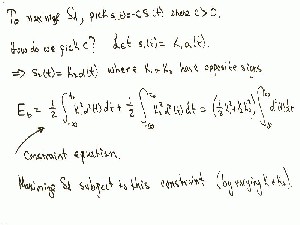 To maximize Sd, pick s₁(t) = -C S₀(t) where C > 0.
How do we pick C? Let s₁(t) = k₁ a(t).
⇒ S₀(t) = k₀ a(t) where k₁ + k₀ have opposite signs
E_b = ½ ∫ k₁² a²(t) dt + ½ ∫ k₀² a²(t) dt = (½ k₁² + ½ k₀²) ∫ a²(t) dt
Constraint equation.
Maximize Sd subject to this constraint (by varying k₁ + k₀).